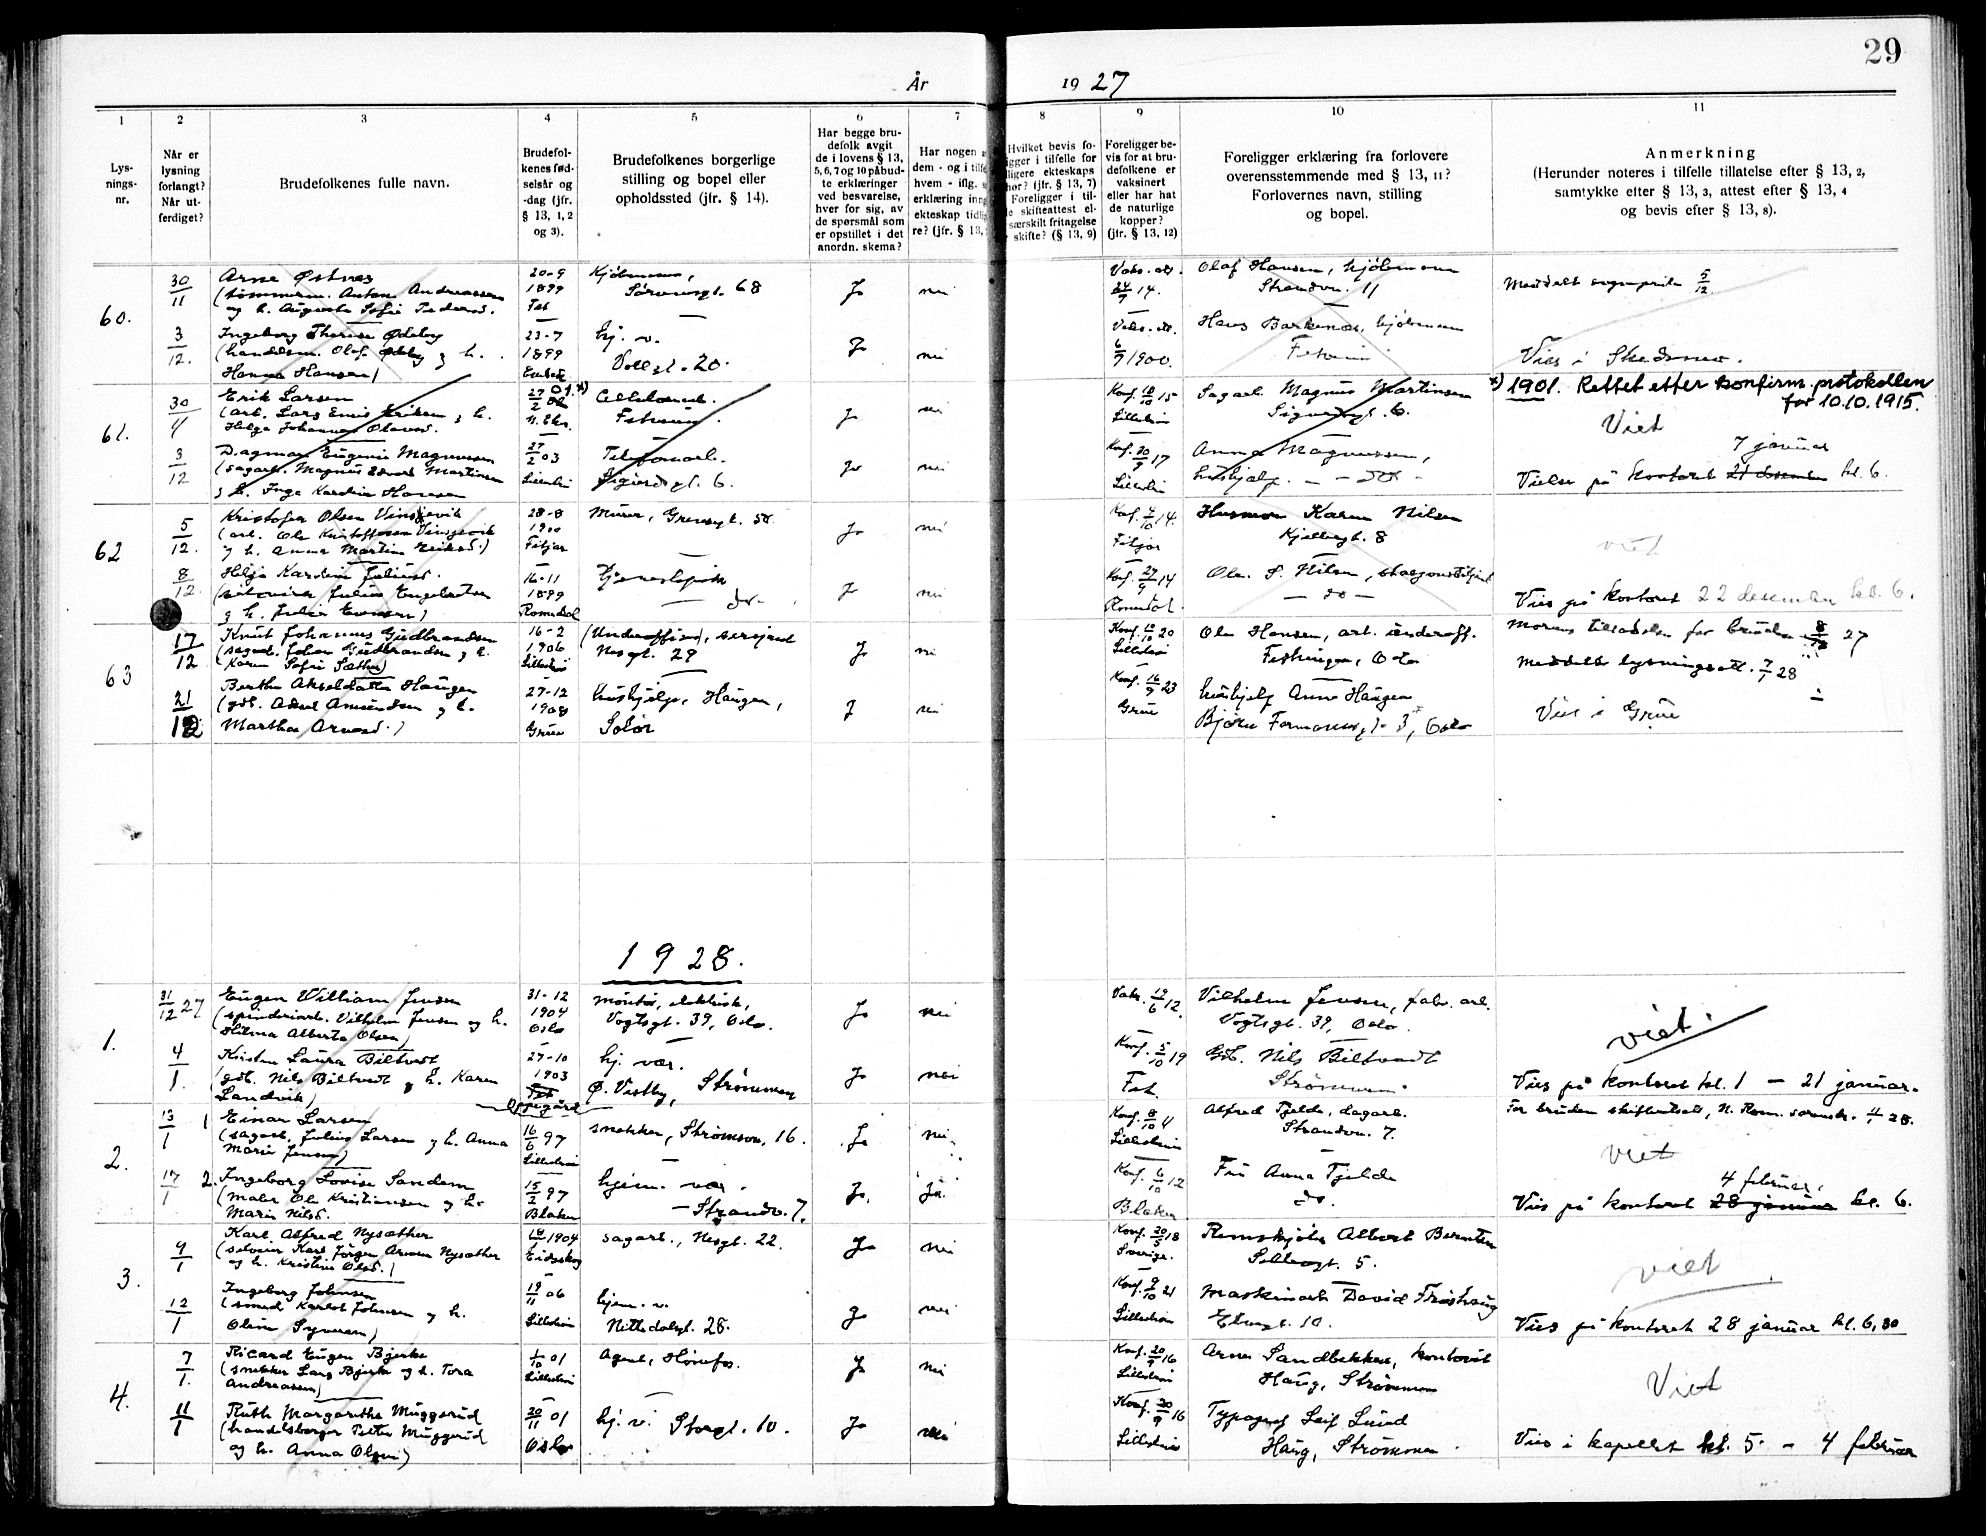 29
År 1927
1 2 3 4 5 6 7 8 9 10 11
Lys-
nings-
nr.
Når er
lysning
forlangt?
Når ut-
ferdiget?
Brudefolkenes fulle navn.
Brudefol-
kenes fød-
selsår og
-dag (jfr.
§ 13, 1, 2
og 3).
Brudefolkenes borgerlige
stilling og bopel eller
opholdssted (jfr. § 14).
Har begge bru-
defolk avgit
de i lovens § 13,
5, 6, 7 og 10 påbud-
te erklæringer
ved besvarelse,
hver for sig, av
de spørsmål som
er opstillet i det
anordn. skema?
Har nogen a
dem - og i tilfe
hvem - iflg. s
erklæring inng
ekteskap tidlig
re? (jfr. § 13,
Hvilket bevis fo-
igger i tilfelle for
ligere ekteskaps
hør? (jfr. § 13, 7)
Foreligger i til-
e skifteattest el-
særskilt fritagelse
skifte? (§ 13, 9)
Foreligger be-
vis for at bru-
defolkene er
vaksinert
eller har hat
de naturlige
kopper?
(jfr. § 13, 12)
Foreligger erklæring fra forlovere
overensstemmende med § 13, 11?
Forlovernes navn, stilling
og bopel.
Anmerkning
(Herunder noteres i tilfelle tillatelse efter § 13, 2,
samtykke efter § 13, 3, attest efter § 13, 4
og bevis efter § 13, 8).
60.
30/11
Arne Østnes
(tømmerm. Anton Andreassen
og h. Augusta Sofie Pedersd.
20-9
1899
Fet
Kjøbmann,
68
Ja
nei
24/9 14.
Olaf Hansen, kjøbmann
Strandv. 11
5/12
3/12.
Ingeborg Therese Ødeby
(handelsm. Olaf Ødeby og h.
Hanna Hansen)
23-7
1899
hj. v.
Vollgt. 20.
Ja
nei
6/9 1900.
Hans Barkenæs, kjøbmann
Vies i Skedsmo.
61.
30/4
Erik Larsen
27/2 01 x)
Ja
nei
Konf. 10/10 15
Lillestrøm
Sagarb. Magnus Martinsen
x) 1901. Rettet etter konfirm.protokollen
for 10.10.1915.
Viet
3/12
Dagmar Eugenie Magnussen
(sagarb. Magnus Edvard Martinsen
og h. Inga Karoline Hansen
27/2 03
Telefonarb.
Sigurdsgt. 6.
Ja
nei
Konf. 30/9 17
Anna Magnussen,
hushjelp. - - do -
7 januar
Vielse på kontoret 21 desember kl. 6.
62
5/12.
Kristofer Olsen Vinsjevik
(arb. Ole Kristoffersen Vinsjevik
og h. Anna Martine Eriksd.)
28-8
1900
Fitjar
Murer,
Ja
nei
Konf. 4/10 14.
Fitjar
Husmor Karen Nilsen
Kjellergt. 8
viet
8/12
Helga Karoline Juliusd.
16-11
1899
Romedal
Tjenestepike
- do -
Ja
nei
Konf. 27/9 14
Romedal.
Ole S. Nilsen,
- do -
Vies på kontoret 22 desember kl. 6.
63
17/12
Knut Johannes Gudbrandsen
(sagarb. Johan Gudbrandsen og h.
Karen Sofie Sæther)
16-2
1906
Lillestrøm
(Underoffiser), sersjant
Nesgt. 29
Ja
nei
Konf. 10/10 20
Lillestrøm
Ole Hansen, art. underoff.
Festningen, Oslo
Morens tilladelse for bruden 8/12 27
Meddelt lysningsatt. 7/1 28
21/12
Berthe Akseldatter Haugen
(gdb. Aksel Amundsen og h.
Martha Arnesd.)
27-12
1908
Grue
hushjelp, Haugen,
Solør
J
nei
Konf. 16/9 23
Grue
hushjelp Anne Haugen
Bjørn Farmannsgt. 3, Oslo
Viet i Grue
1928.
1.
31/12 27
Eugen William Jensen
(spinderiarb. Vilhelm Jensen og h.
Hilma Alberta Olsen)
31-12
1904
Oslo
montør, elektrisk,
Vogtsgt. 39, Oslo.
Ja
nei
Vaks. 19/6 12.
Vilhelm Jensen, fabr. arb.
Vogtsgt. 39, Oslo.
viet.
4/1.
Kristen Laura Biltvedt
(gdb. Nils Biltvedt og h. Karen
Landvik)
27-10
1903
Fet
Oppegård
hj. vær.
Ø. Vestby, Strømmen
Ja
nei
Konf. 5/10 19
Fet.
Gdb. Nils Biltvedt
Strømmen.
Vies på kontoret kl. 1 - 21 januar.
2.
13/1 1
Einar Larsen
(sagarb. Julius Larsen og h. Anna
Marie Jensen)
16/6 97
Lillestrøm
snekker, Strømsvn. 16.
Ja
nei.
Konf. 8/10 4
Lillestrøm
Alfred Fjelde, dagarb.
Strandvn. 7.
For bruden skifteattest, N. Rom. sorenskr. 4/1 28.
viet
17/1 2.
Ingeborg Lovise Sandem
(maler Ole Kristiansen og h.
Marie Nilsd.
15/2 97
Blaker
hjem. vær.
- Strandv. 7.
Ja.
ja.
Konf. 6/10 12
Blaker
Fru Anna Fjelde
do.
4 februar.
Vies på kontoret 28 januar kl. 6.
3.
9/1
Karl Alfred Nysæther
(seloveier Karl Jørgen Arvesen Nysæther
og h. Kristine Olsd.)
1904
Eidskog
sagarb., Nesgt. 22.
Ja
nei
Konf. 20/5 18
Sverige.
Remskjøter Albert Berntsen
5.
viet
12/1
Ingeborg Johnsen
(smed Karlot Johnsen og h.
Oline Syversen)
19/11 06
Lillestrøm
hjem. v.
Nittedalsgt. 28.
Ja
nei
Konf. 9/10 21
Lillestrøm
Maskinarb David Frøshaug
Elvegt. 10.
Vies på kontoret 28 januar kl. 6,30
4.
7/1.
Ricard Eugen Bjerke
(snekker Lars Bjerke og h. Tora
Andreassen)
1/10 01
Lillestrøm
Agent, Hønefos.
Ja
nei
Konf. 20/9 16
Lillestrøm
Arne Sandbekken, kontorist
Haug, Strømmen
Viet
11/1
Ruth Margarethe Muggerud
(handelsborger Petter Muggerud
og h. Anna Olsen)
20/11 01
Oslo
hj. v. Storgt. 10.
Ja
nei
Konf. 20/9 16
Lillestrøm
Typograf Leif Lund
Haug, Strømmen.
Vies i kapellet kl. 5 - 4 februar